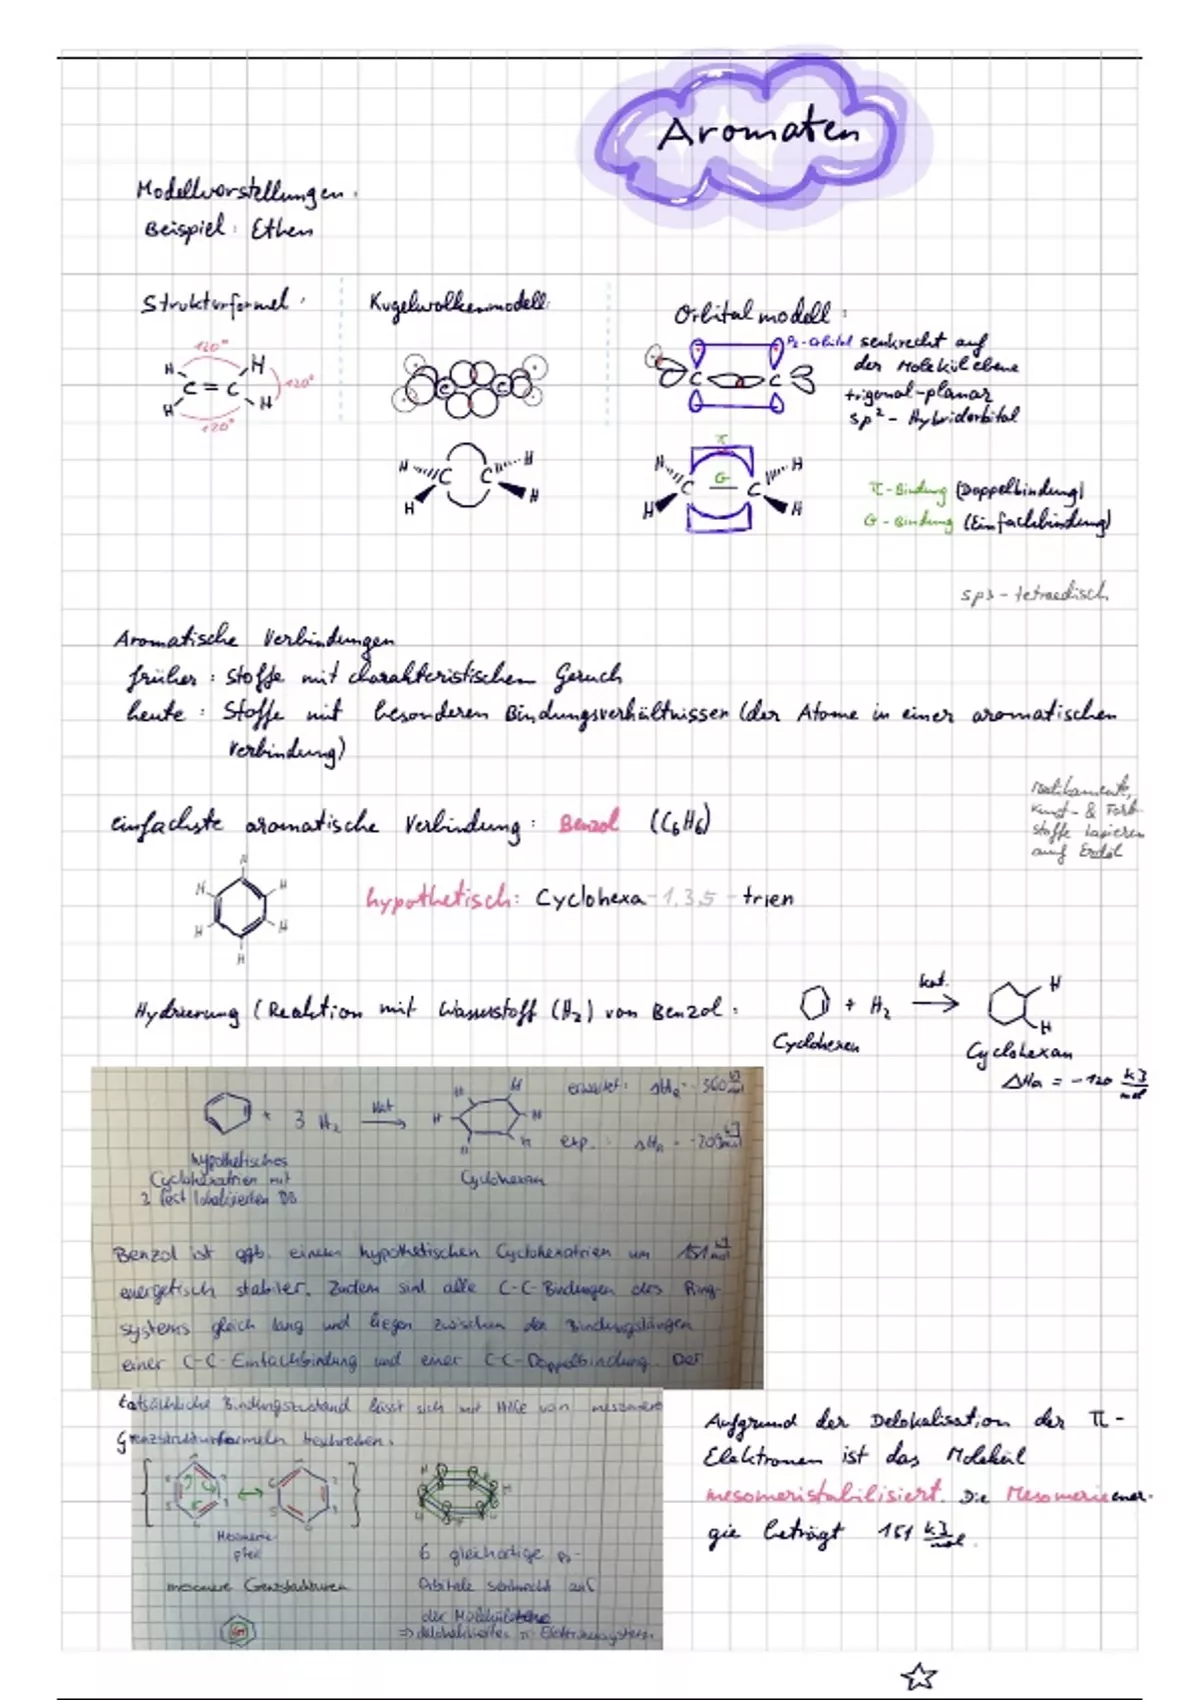 Aromaten
Modellvorstellungen:
Beispiel: Ethen
Strukturformel:
120°
H H
C = C 120°
H H
120°
Kugelwolkenmodell:
C C
H C C H
H H
Orbitalmodell:
Pz-Orbital senkrecht auf
der Molekülebene
trigonal-planar
sp² - Hybridorbital
C C
π
H G H
C — C
H H
π-Bindung (Doppelbindung)
G-Bindung (Einfachbindung)
sp3 - tetraedisch
Aromatische Verbindungen
früher: Stoffe mit charakteristischen Geruch
heute: Stoffe mit besonderen Bindungsverhältnissen (der Atome in einer aromatischen
Verbindung)
Medikamente,
Kunst- & Farb-
stoffe basieren
auf Erdöl
einfachste aromatische Verbindung: Benzol (C6H6)
H
H H
H H
H
hypothetisch: Cyclohexa-1,3,5-trien
Hydrierung (Reaktion mit Wasserstoff (H2) von Benzol:
+ H2 kat. → H
H
Cyclohexen
Cyclohexan
ΔHR = -120 kJ/mol
+ 3 H2 kat →
H H
H H
H H
erwartet: ΔHR = -360 kJ/mol
exp.: ΔHR = -209 kJ/mol
hypothetisches
Cyclohexatrien mit
3 fest lokalisierten DB
Cyclohexan
Benzol ist ggb. einem hypothetischen Cyclohexatrien um 151 kJ/mol
energetisch stabiler. Zudem sind alle C-C-Bindungen des Ring-
systems gleich lang und liegen zwischen den Bindungslängen
einer C-C-Einfachbindung und einer C-C-Doppelbindung. Der
tatsächliche Bindungszustand lässt sich mit Hilfe von mesomere
Grenzstrukturformeln beschreiben.
Mesomerie-
pfeil
mesomere Grenzstrukturen
6π
6 gleichartige pz-
Orbitale senkrecht auf
der Molekülebene
⇒ delokalisiertes π-Elektronensystem
Aufgrund der Delokalisation der π-
Elektronen ist das Molekül
mesomeristabilisiert. Die Mesomerieener-
gie beträgt 151 kJ/mol.